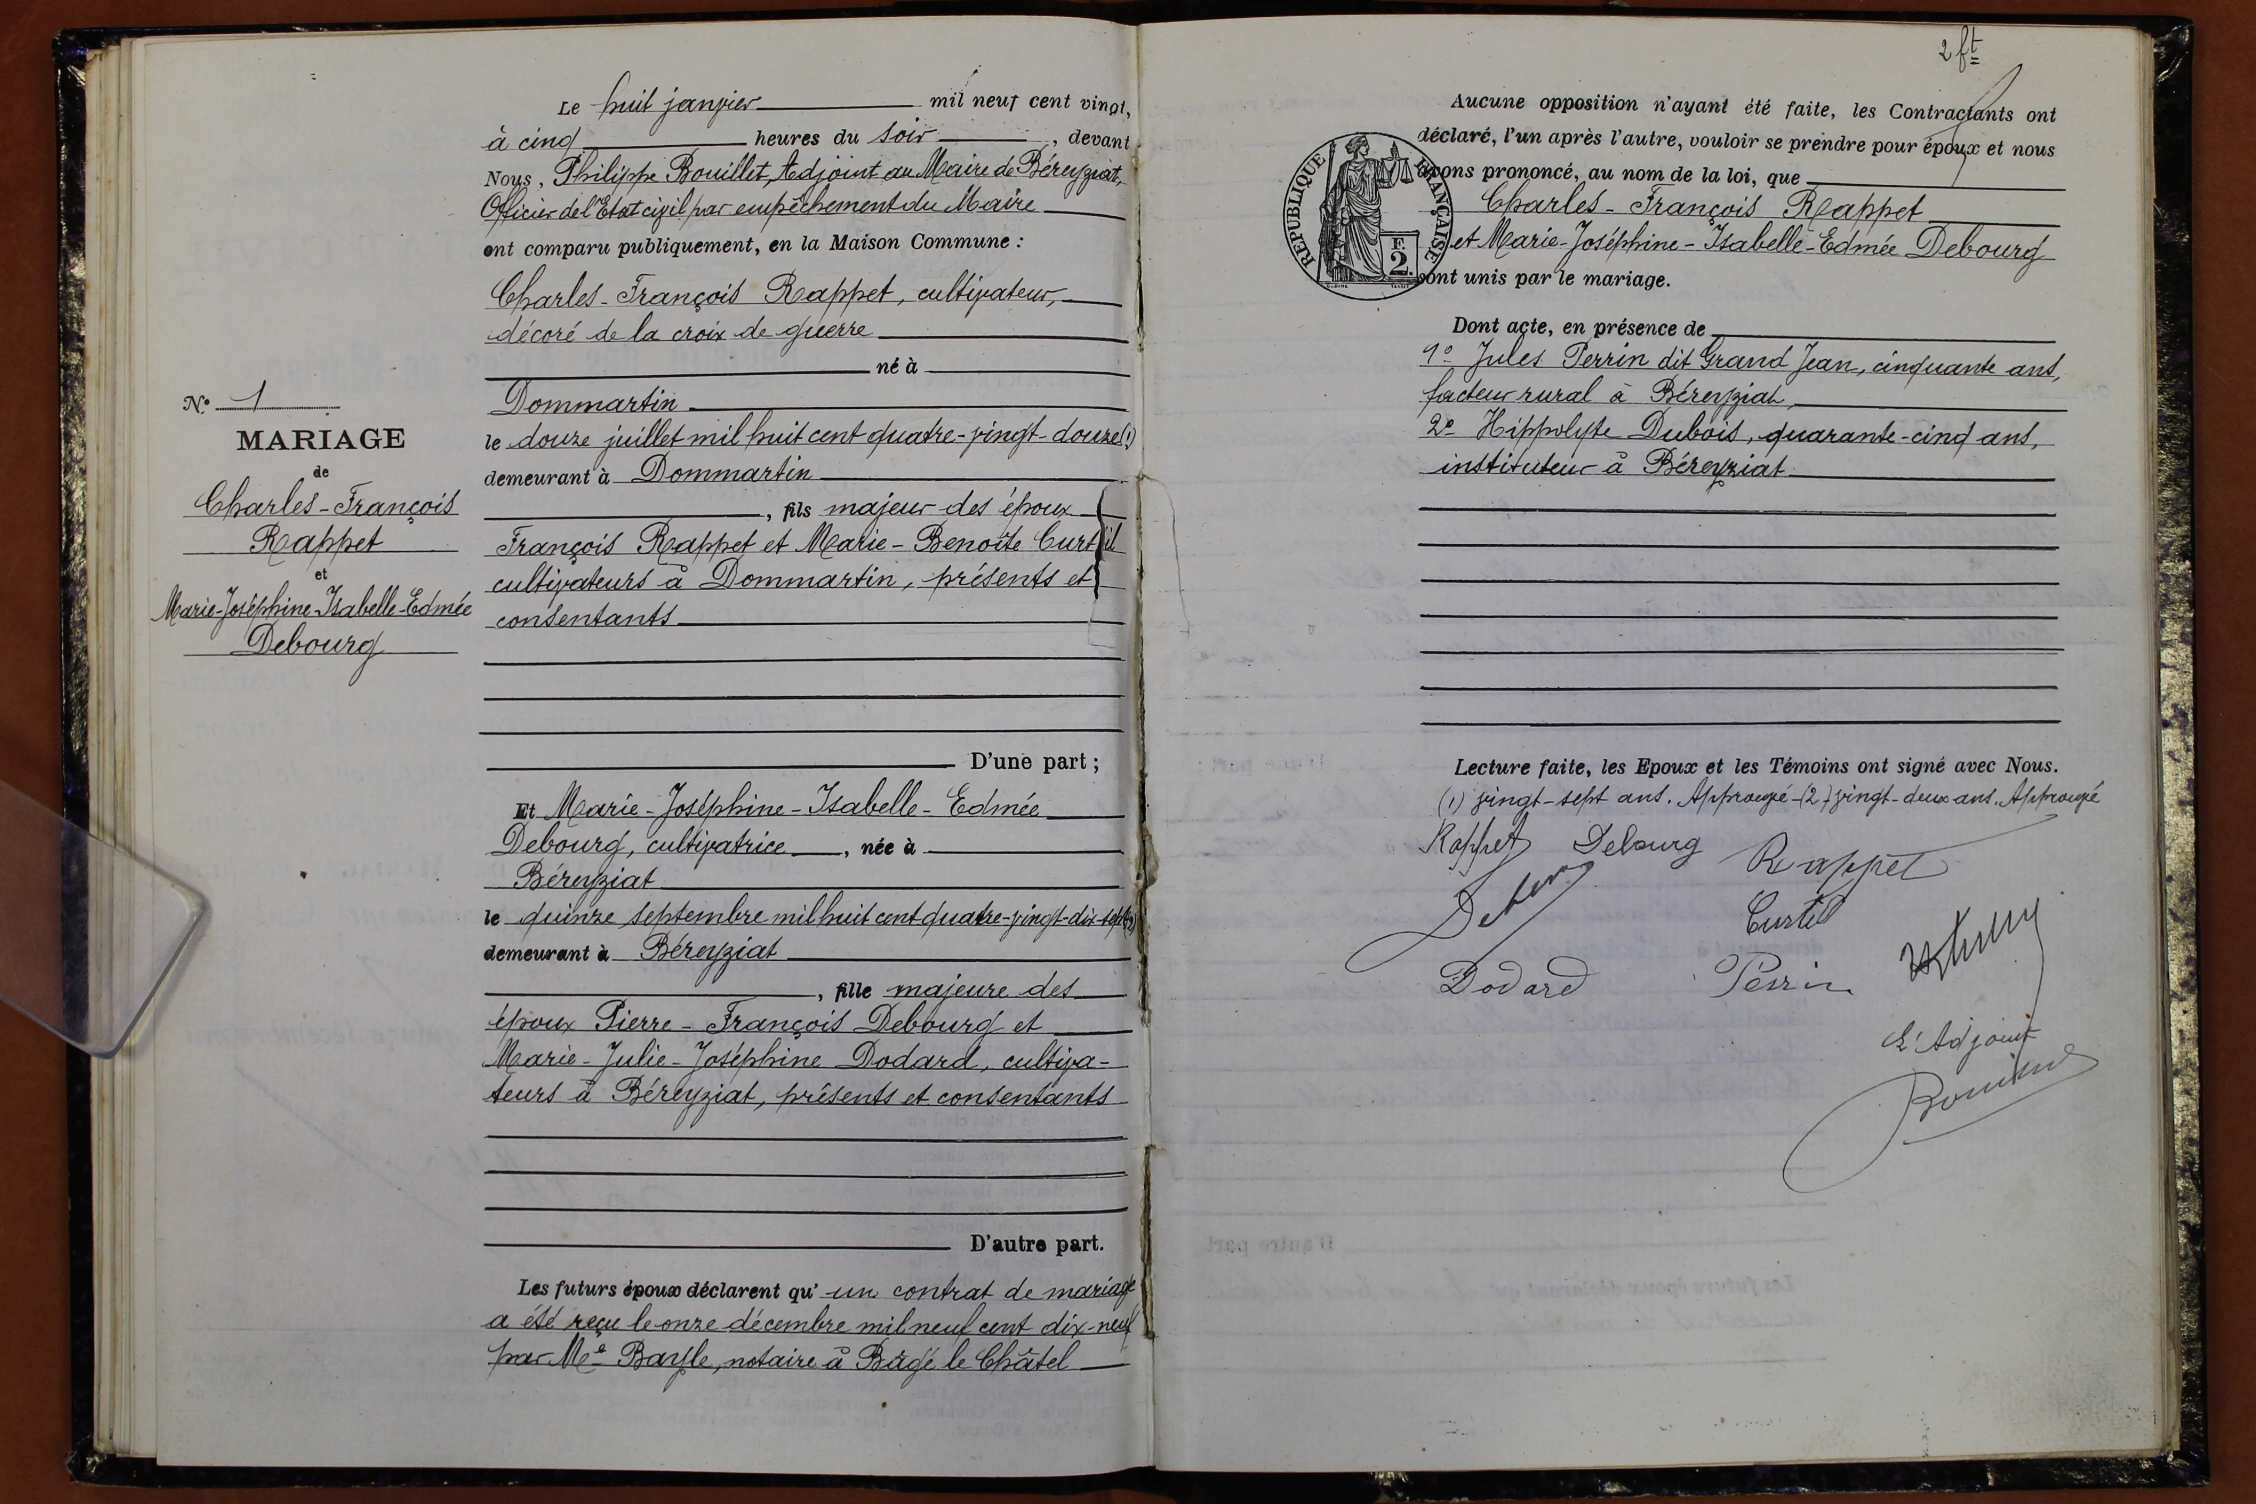 N.º 1
MARIAGE
de
Charles-François
Rappet
et
Marie-Joséphine-Isabelle-Edmée
Debourg
Le huit janvier mil neuf cent vingt,
à cinq heures du soir, devant
Nous, Philippe Bouillet, Adjoint au Maire de Béreyziat,
Officier de l'Etat civil par empêchement du Maire
ont comparu publiquement, en la Maison Commune :
Charles-François Rappet, cultivateur,
décoré de la croix de guerre
né à
Dommartin
le douze juillet mil huit cent quatre-vingt-douze (1)
demeurant à Dommartin
, fils majeur des époux
François Rappet et Marie-Benoîte Curtil
cultivateurs à Dommartin, présents et
consentants
D'une part ;
Et Marie-Joséphine-Isabelle-Edmée
Debourg, cultivatrice, née à
Béreyziat
le quinze septembre mil huit cent quatre-vingt-dix-sept (2)
demeurant à Béreyziat
, fille majeure des
époux Pierre-François Debourg et
Marie-Julie-Joséphine Dodard, cultiva-
teurs à Béreyziat, présents et consentants
D'autre part.
Les futurs époux déclarent qu'un contrat de mariage
a été reçu le onze décembre mil neuf cent dix-neuf
par Me Bayle, notaire à Bâgé le Châtel
2 ft
Aucune opposition n'ayant été faite, les Contractants ont
déclaré, l'un après l'autre, vouloir se prendre pour époux et nous
avons prononcé, au nom de la loi, que
Charles-François Rappet
et Marie-Joséphine-Isabelle-Edmée Debourg
sont unis par le mariage.
RÉPUBLIQUE FRANÇAISE
F.
2.
Dont acte, en présence de
1º Jules Perrin dit Grand Jean, cinquante ans,
facteur rural à Béreyziat,
2º Hippolyte Dubois, quarante-cinq ans,
instituteur à Béreyziat
Lecture faite, les Epoux et les Témoins ont signé avec Nous.
(1) vingt-sept ans. Approuvé-(2) vingt-deux ans. Approuvé
Rappet Debourg Rappet
Debourg
Curtil
Dodard Perrin
L'Adjoint
Bouillet